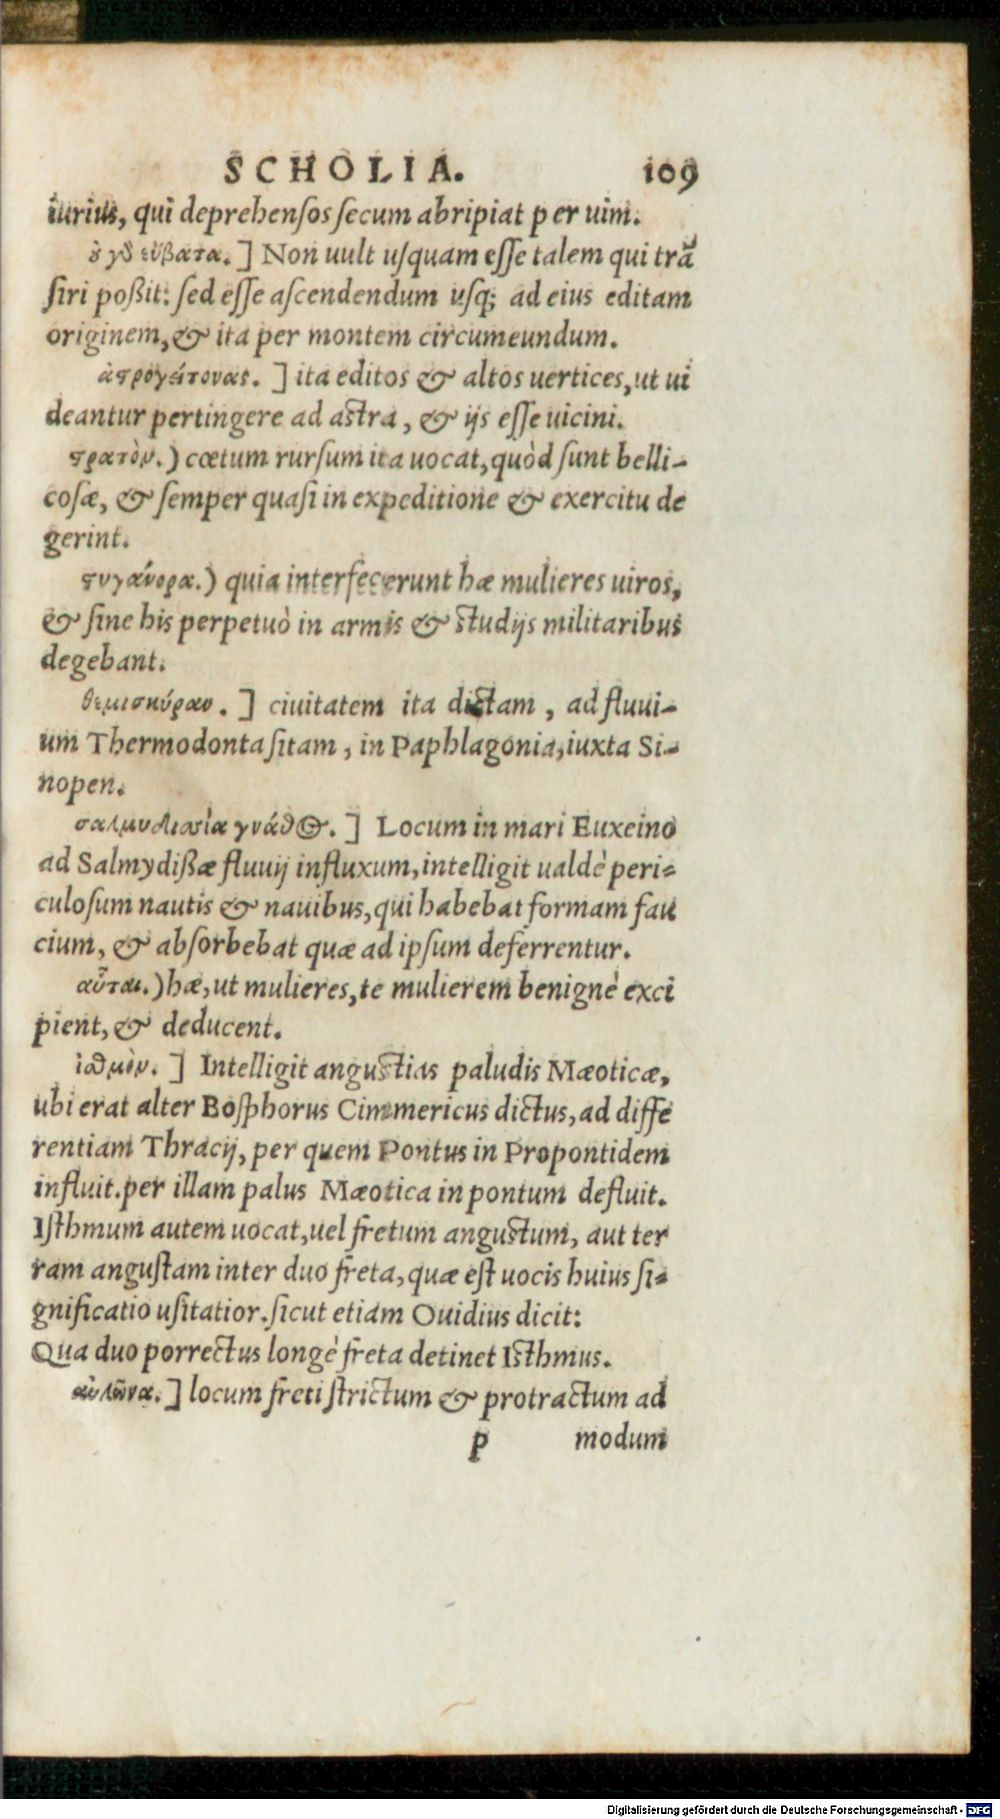 SCHOLIA. 109
iurius, qui deprehensos secum abripiat per uim.
ὀ γδ εὔβατα.] Non uult usquam esse talem qui trā
siri poßit: sed esse ascendendum usq; ad eius editam
originem, & ita per montem circumeundum.
ἀςρογείτονας.] ita editos & altos uertices, ut ui
deantur pertingere ad astra, & ijs esse uicini.
ςρατὸν.) cœtum rursum ita uocat, quòd sunt belli-
cosæ, & semper quasi in expeditione & exercitu de
gerint.
ςυγάνορα.) quia interfecerunt hæ mulieres uiros,
& sine his perpetuò in armis & studijs militaribus
degebant.
θεμισκύραν.] ciuitatem ita dictam, ad fluui-
um Thermodonta sitam, in Paphlagonia, iuxta Si-
nopen.
σαλμυδισία γνάθος.] Locum in mari Euxeino
ad Salmydißæ fluuij influxum, intelligit ualdè peri-
culosum nautis & nauibus, qui habebat formam fau
cium, & absorbebat quæ ad ipsum deferrentur.
αὗται.) hæ, ut mulieres, te mulierem benignè exci
pient, & deducent.
ἰσθμὸν.] Intelligit angustias paludis Mæoticæ,
ubi erat alter Bosphorus Cimmericus dictus, ad diffe
rentiam Thracij, per quem Pontus in Propontidem
influit. per illam palus Mæotica in pontum defluit.
Isthmum autem uocat, uel fretum angustum, aut ter
ram angustam inter duo freta, quæ est uocis huius si-
gnificatio usitatior. sicut etiam Ouidius dicit:
Qua duo porrectus longè freta detinet Isthmus.
αὐλῶνα.] locum freti strictum & protractum ad
p modum
Digitalisierung gefördert durch die Deutsche Forschungsgemeinschaft - DFG